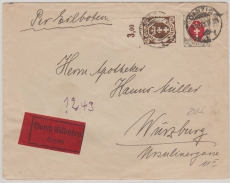 Per Eilboten
3,00
Herrn Apotheker
Hanns Müller
1243
Durch Eilboten
Würzburg
Ursulinergasse